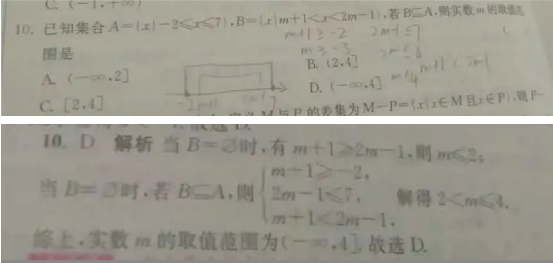 C. (-1,+∞)
10. 已知集合 A={x|-2≤x≤7},B={x|m+1<x<2m-1},若B⊆A,则实数 m 的取值范
围是
m+1≥-2 2m-1≤7
m≥-3 2m≤8
m≤4 m+1<2m-1
A. (-∞,2]
B. (2,4]
C. [2,4]
D. (-∞,4]
-2 m+1 2m-1 7
M与P的差集为M-P={x|x∈M且x∉P},则P-
故选D.
10. D 解析 当 B=∅时,有 m+1≥2m-1,则 m≤2;
当 B=∅时,若 B⊆A,则
m+1≥-2,
2m-1≤7, 解得 2<m≤4.
m+1<2m-1,
综上,实数 m 的取值范围为(-∞,4],故选 D.